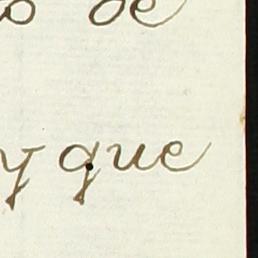 de
y que